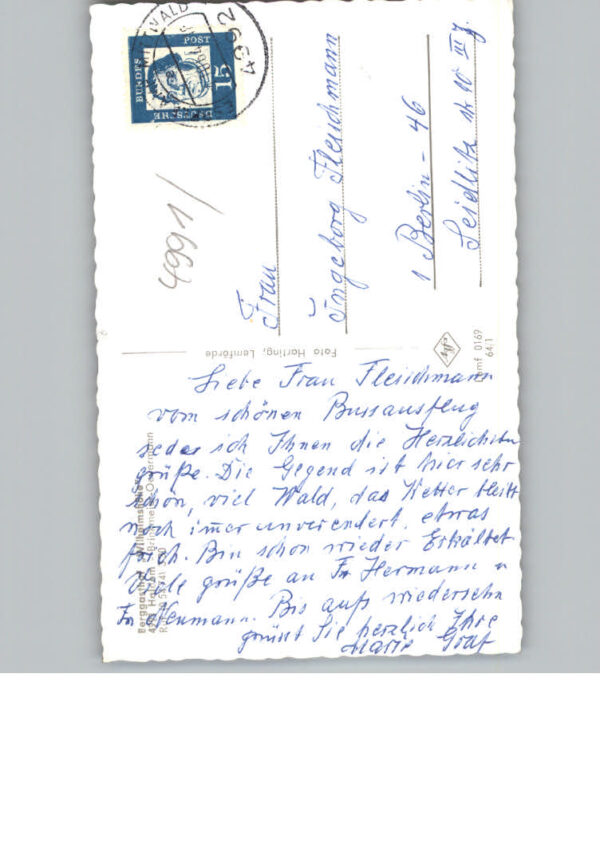 BUNDES
POST
DEUTSCHE
15
WALD
4992
4991/
Frau
Ingeborg Fleischmann
1 Berlin - 46
Foto Harting, Lemförde
0169
64.1
Liebe Frau Fleischmann
vom schönen Bussausflug
ich Ihnen die Herzlichsten
grüße. Die Gegend ist hier sehr
schön, viel Wald, das Wetter bleibt
noch imer unverendert, etwas
frich. Bin schon wieder Erkältet
Viele grüße an Fr Hermann u
Fr Neumann. Bis aufs wiedersehn
grünst Sie herzlich Ihre
Marie Graf